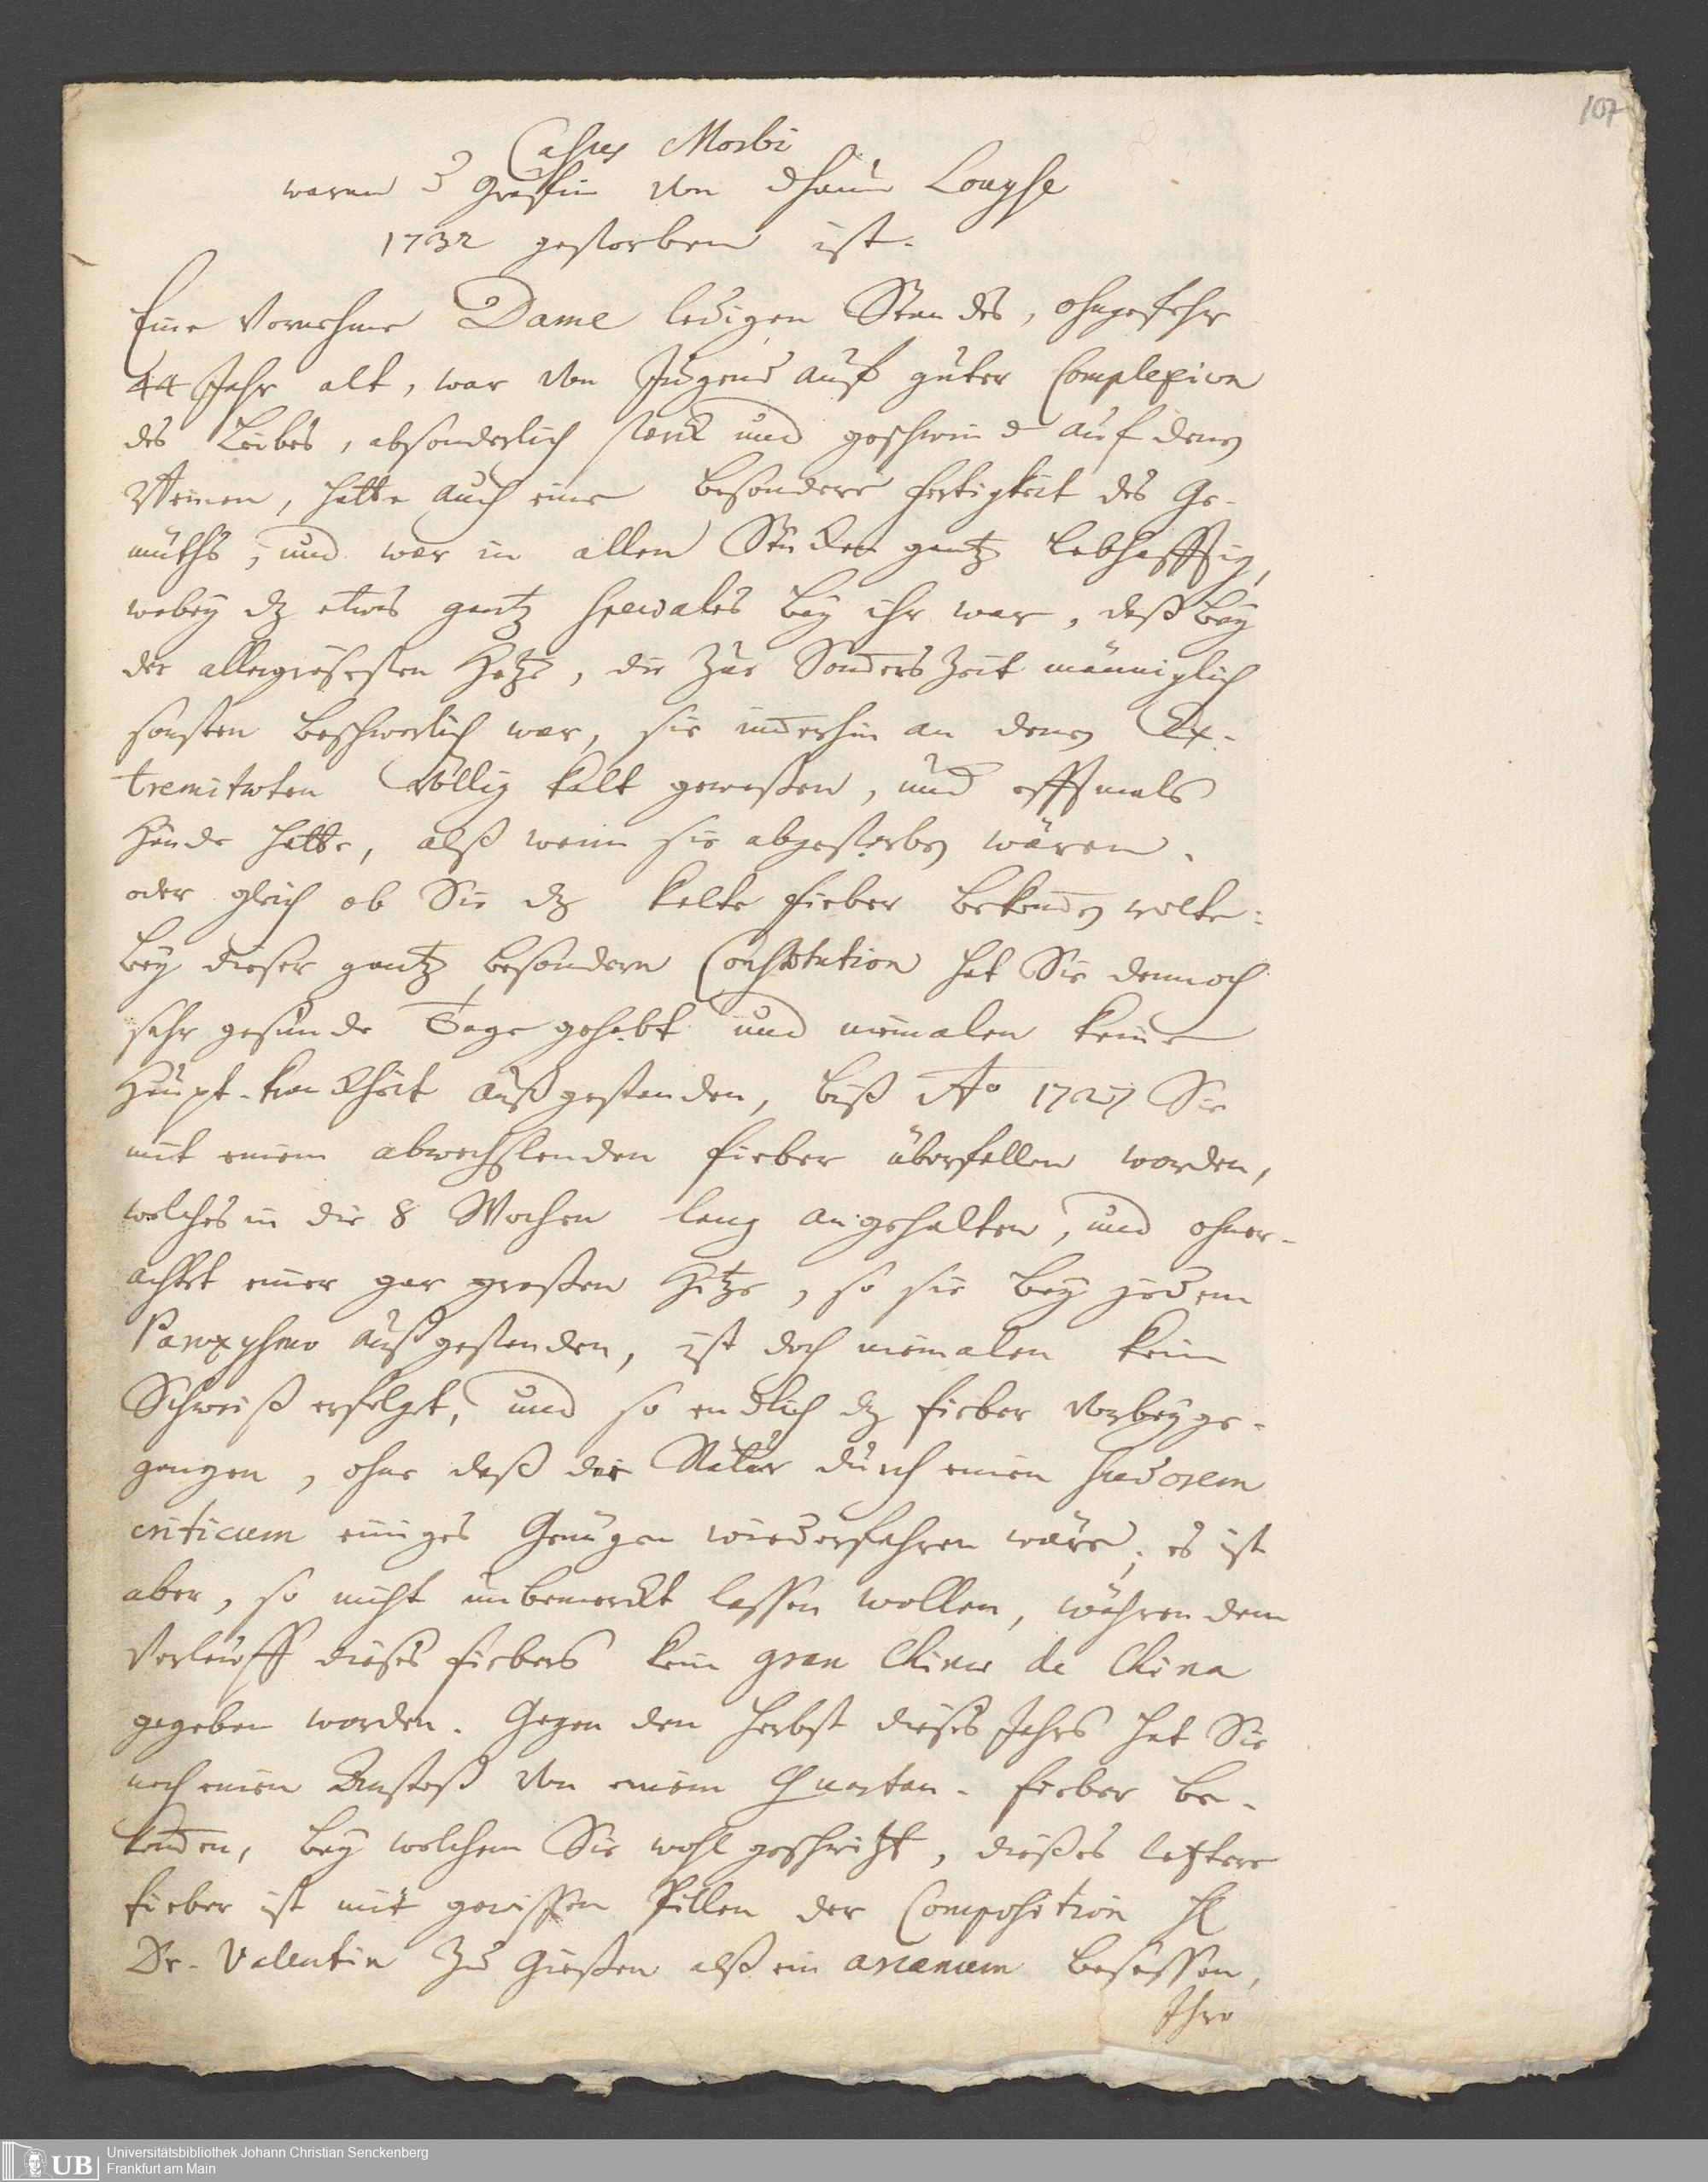 107
Casus Morbi
waran d Gräffin von Dhaun Louyse
1732 gestorben ist.
Eine Vornehme Dame ledigen Standes, ohngefehr
44 Jahr alt, war von Jugend auf guter Complexion
des Leibes, absonderlich starck und geschwind auf denen
Beinen, hatte auch eine besondere Fertigkeit des Ge-
müths, und war in allen Stücken gantz lebhafftig,
wobey dz etwas gantz speciales bey ihr war, daß bey
der allergrösesten Hitze, die zur Sommers Zeit männiglich
sonsten beschwerlich war, sie immerhin an denen Ex-
tremitæten völlig kalt gewesen, und offtmals
Hände hatte, alß wenn sie abgestorben wären.
oder gleich ob Sie dz kalte Fieber bekommen wolte:
bey dieser gantz besondern Constitution hat Sie dennoch
sehr gesunde Tage gehabt und niemalen keine
Haupt-kranckheit außgestanden, biß Ao 1727 Sie
mit einem abwechslenden Fieber überfallen worden,
welches in die 8 Wochen lang angehalten, und ohner-
achtet einer gar großen Hitze, so sie bey jedem
Paroxysmo außgestanden, ist doch niemalen kein
Schweiß erfolget, und so endlich dz Fieber vorbeyge-
gangen, ohne daß der Natur durch einen sudorem
criticum einiges Genügen wiederfahren wäre; es ist
aber, so nicht unbemerckt lassen wollen, währendem
Verlauff dieses Fiebers kein gran Chinæ de China
gegeben worden. Gegen den Herbst dieses Jahrs hat Sie
noch einen Anstoß von einem Quartan-Fieber be-
kommen, bey welchem Sie wohl geschwitzt, dieses letztere
Fieber ist mit gewissen Pillen der Composition H
Dr. Valentin zu Giessen alß ein arcanum besessen,
Ihro
UB Universitätsbibliothek Johann Christian Senckenberg
Frankfurt am Main